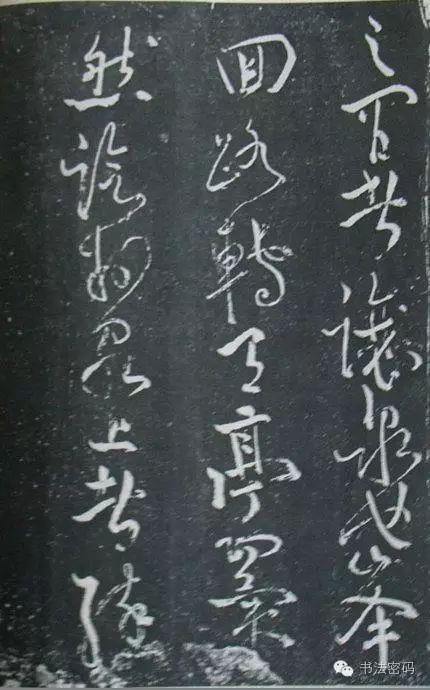 之間者讓泉也峯
回路轉有亭翼
然臨於泉上者醉
书法密码